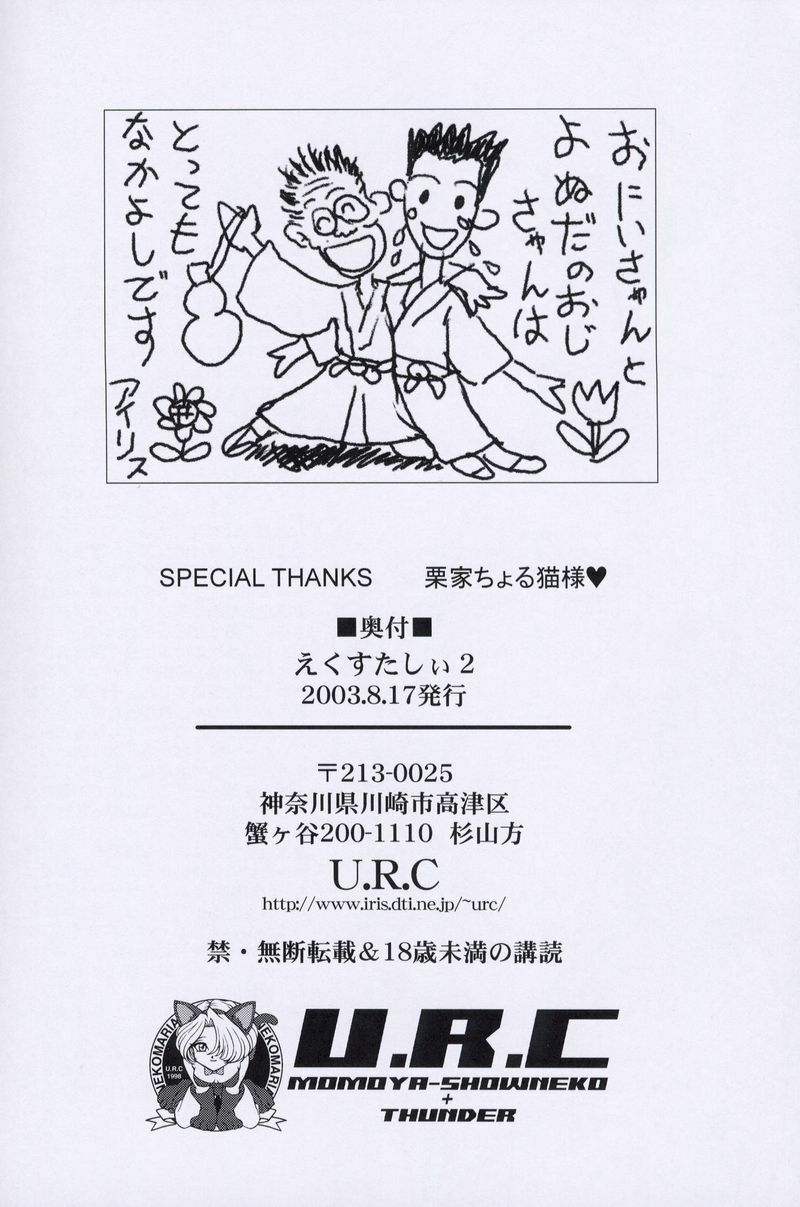 おにいさゃんと
よぬだのおじ
さゃんは
とっても
なかよしです
アイリス
SPECIAL THANKS 栗家ちょる猫様♥
■奥付■
えくすたしぃ2
2003.8.17発行
〒213-0025
神奈川県川崎市高津区
蟹ヶ谷200-1110 杉山方
U.R.C
http://www.iris.dti.ne.jp/~urc/
禁・無断転載&18歳未満の講読
NEKOMARIA
NEKOMARIA
U.R.C
1998
U.R.C
MOMOYA-SHOWNEKO
+
THUNDER